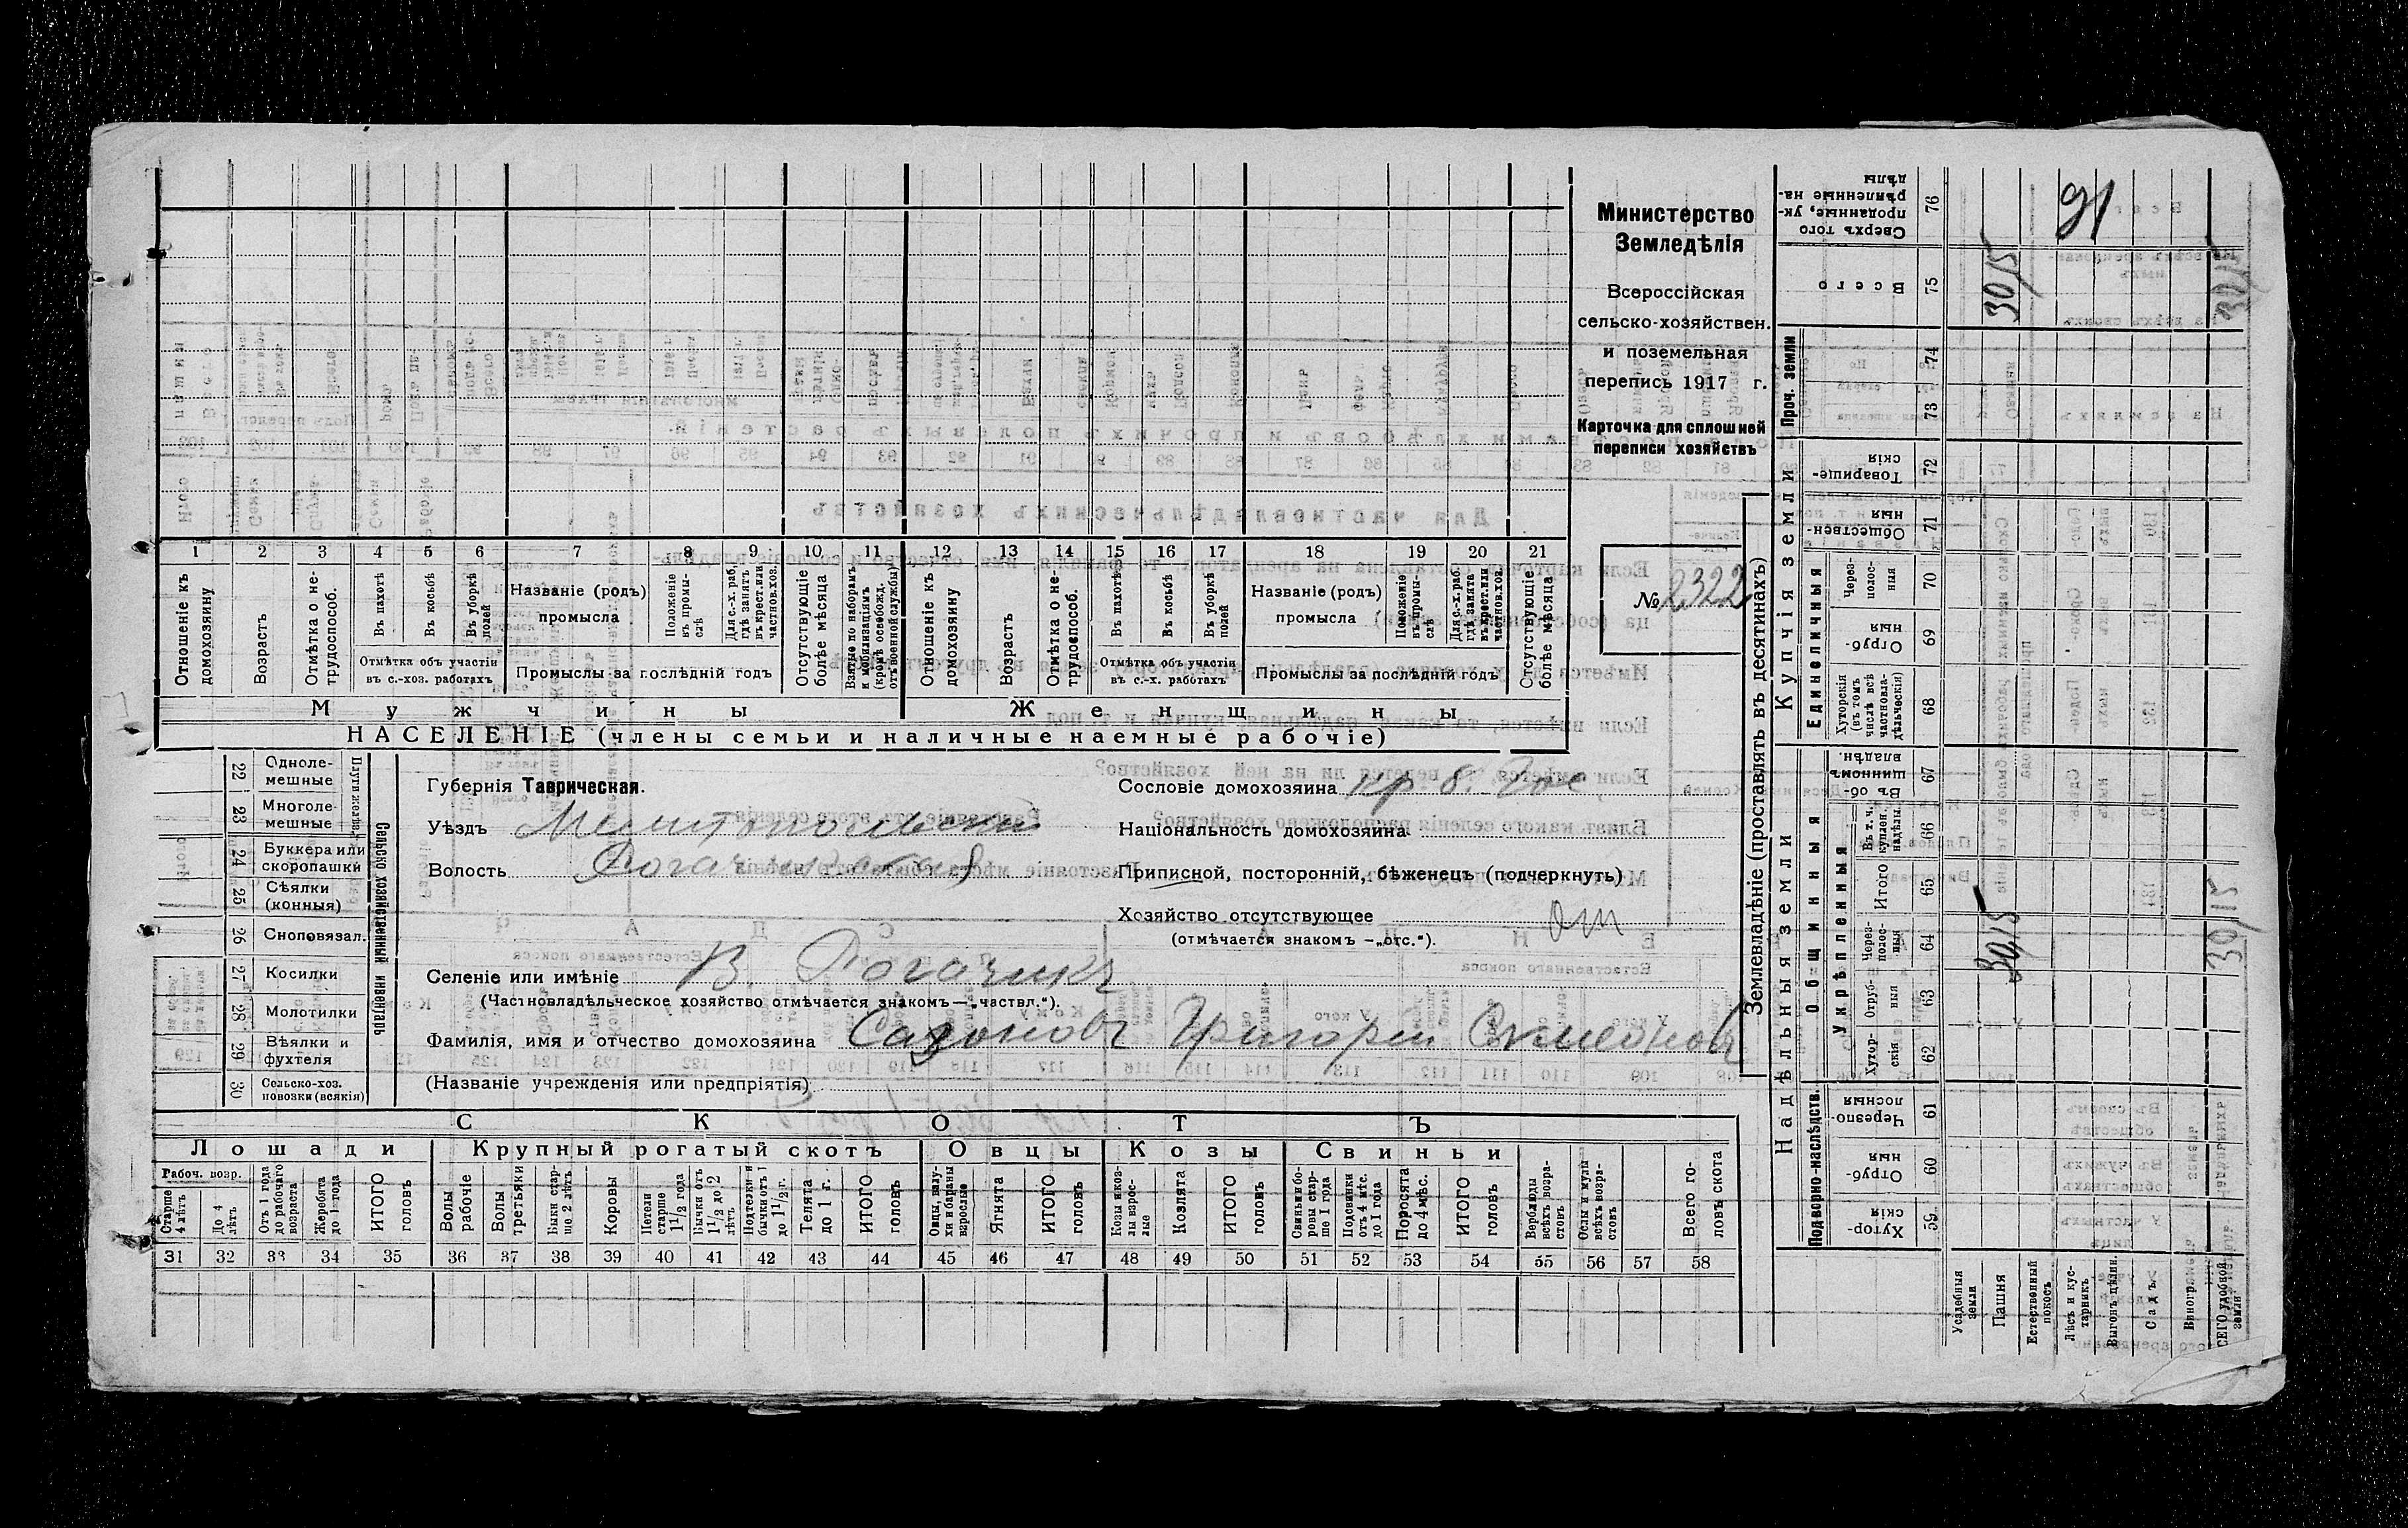 Министерство
Земледѣлія
Всероссійская
сельско-хозяйствен.
и поземельная
перепись 1917 г.
Карточка для сплошной
переписи хозяйствъ
№ 2322
1 2 3 4 5 6 7 8 9 10 11 12 13 14 15 16 17 18 19 20 21
Отношеніе къ домохозяину
Возрастъ
Отмѣтка о не-трудоспособ.
Въ пахотѣ
Въ косьбѣ
Въ уборкѣ полей
Отмѣтка объ участіи въ с.-хоз. работахъ
Названіе (родъ) промысла
Положеніе въ промы-слѣ
Для с.-х. раб. гдѣ занятъ въ крест. или частнов. хоз.
Промыслы за послѣдній годъ
Отсутствующіе болѣе мѣсяца
Взятые по наборамъ и мобилизаціямъ (кромѣ освобожд. отъ военной службы)
Отношеніе къ домохозяину
Возрастъ
Отмѣтка о не-трудоспособ.
Въ пахотѣ
Въ косьбѣ
Въ уборкѣ полей
Отмѣтка объ участіи въ с.-х. работахъ
Названіе (родъ) промысла
Положеніе въ промы-слѣ
Для с.-х. раб. гдѣ занята въ крест. или частнов. хоз.
Промыслы за послѣдній годъ
Отсутствующіе болѣе мѣсяца
Мужчины Женщины
НАСЕЛЕНІЕ (члены семьи и наличные наемные рабочіе)
Сельско-хозяйственный инвентарь
22 Одноле-мешные
23 Многоле-мешные
24 Буккера или скоропашки
25 Сѣялки (конныя)
26 Сноповязал.
27 Косилки
28 Молотилки
29 Вѣялки и фухтеля
30 Сельско-хоз. повозки (всякія)
Губернія Таврическая.
Уѣздъ Мелитопольскій
Волость
Селеніе или имѣніе В. Рогачикъ
(Частновладѣльческое хозяйство отмѣчается знакомъ—„частвл.“).
Фамилія, имя и отчество домохозяина Сазоновъ Григорій
(Названіе учрежденія или предпріятія)
Сословіе домохозяина
Національность домохозяина
Приписной, посторонній, бѣженецъ (подчеркнуть)
Хозяйство отсутствующее от
(отмѣчается знакомъ —„отс.“).
СКОТЪ
Лошади Крупный рогатый скотъ Овцы Козы Свиньи
Рабоч. возр.
Старше 4 лѣтъ
До 4 лѣтъ
Отъ 1 года до рабочаго возраста
Жеребята до 1 года
ИТОГО головъ
Волы рабочіе
Волы третьяки
Быки стар-ше 2 лѣтъ
Коровы
Нетели старше 1 1/2 года
Бычки отъ 1 1/2 до 2 лѣтъ
Подтелки и бычки отъ 1 до 1 1/2 г.
Телята до 1 г.
ИТОГО головъ
Овцы, валу-хи и бараны взрослые
Ягнята
ИТОГО головъ
Козы и коз-лы взрос-лые
Козлята
ИТОГО головъ
Свиньи и бо-ровы стар-ше 1 года
Подсвинки отъ 4 мѣс. до 1 года
Поросята до 4 мѣс.
ИТОГО головъ
Верблюды всѣхъ возра-стовъ
Ослы и мулы всѣхъ возра-стовъ
Всего го-ловъ скота
31 32 33 34 35 36 37 38 39 40 41 42 43 44 45 46 47 48 49 50 51 52 53 54 55 56 57 58
Землевладѣніе (проставлять въ десятинахъ)
Надѣльныя земли
Купчія земли
Проч. земли
Сверхъ того проданные, ук-рѣпленные на-дѣлы 76
91
Всего 75
30/15
74
73
Товарище-скія 72
Обществен-ныя 71
Единеличныя
Через-полос-ныя 70
Отруб-ныя 69
Хуторскія (въ томъ числѣ всѣ частновла-дѣльческія) 68
Общинныя
Въ об-щинномъ владѣн. 67
Укрѣпленныя
Въ т. ч. куплен. надѣлы 66
Итого 65
Через-полос-ныя 64
30/15
30/15
Отруб-ныя 63
Хутор-скія 62
Подворно-наслѣдств.
Черезпо-лосныя 61
Отруб-ныя 60
Хутор-скія 59
Усадебныя земли
Пашня
Естественный покосъ
Лѣсъ и кус-тарникъ
Выгонъ цѣлин.
Садъ
Виноградникъ